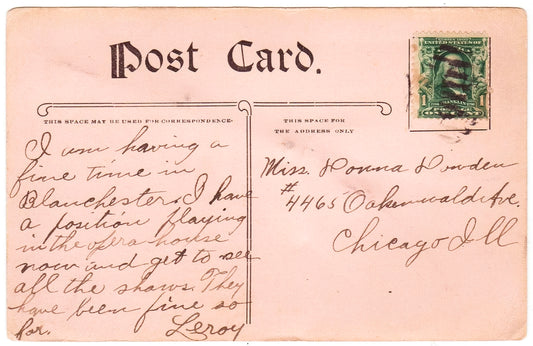 Post Card.
THIS SPACE MAY BE USED FOR CORRESPONDENCE.
THIS SPACE FOR
THE ADDRESS ONLY
I am having a
fine time in
Blanchester. I have
a position playing
in the opera house
now and get to see
all the shows. They
have been fine so
far. Leroy
Miss. Donna
#4465 Oakenwalde Ave.
Chicago Ill
UNITED STATES OF
1 1